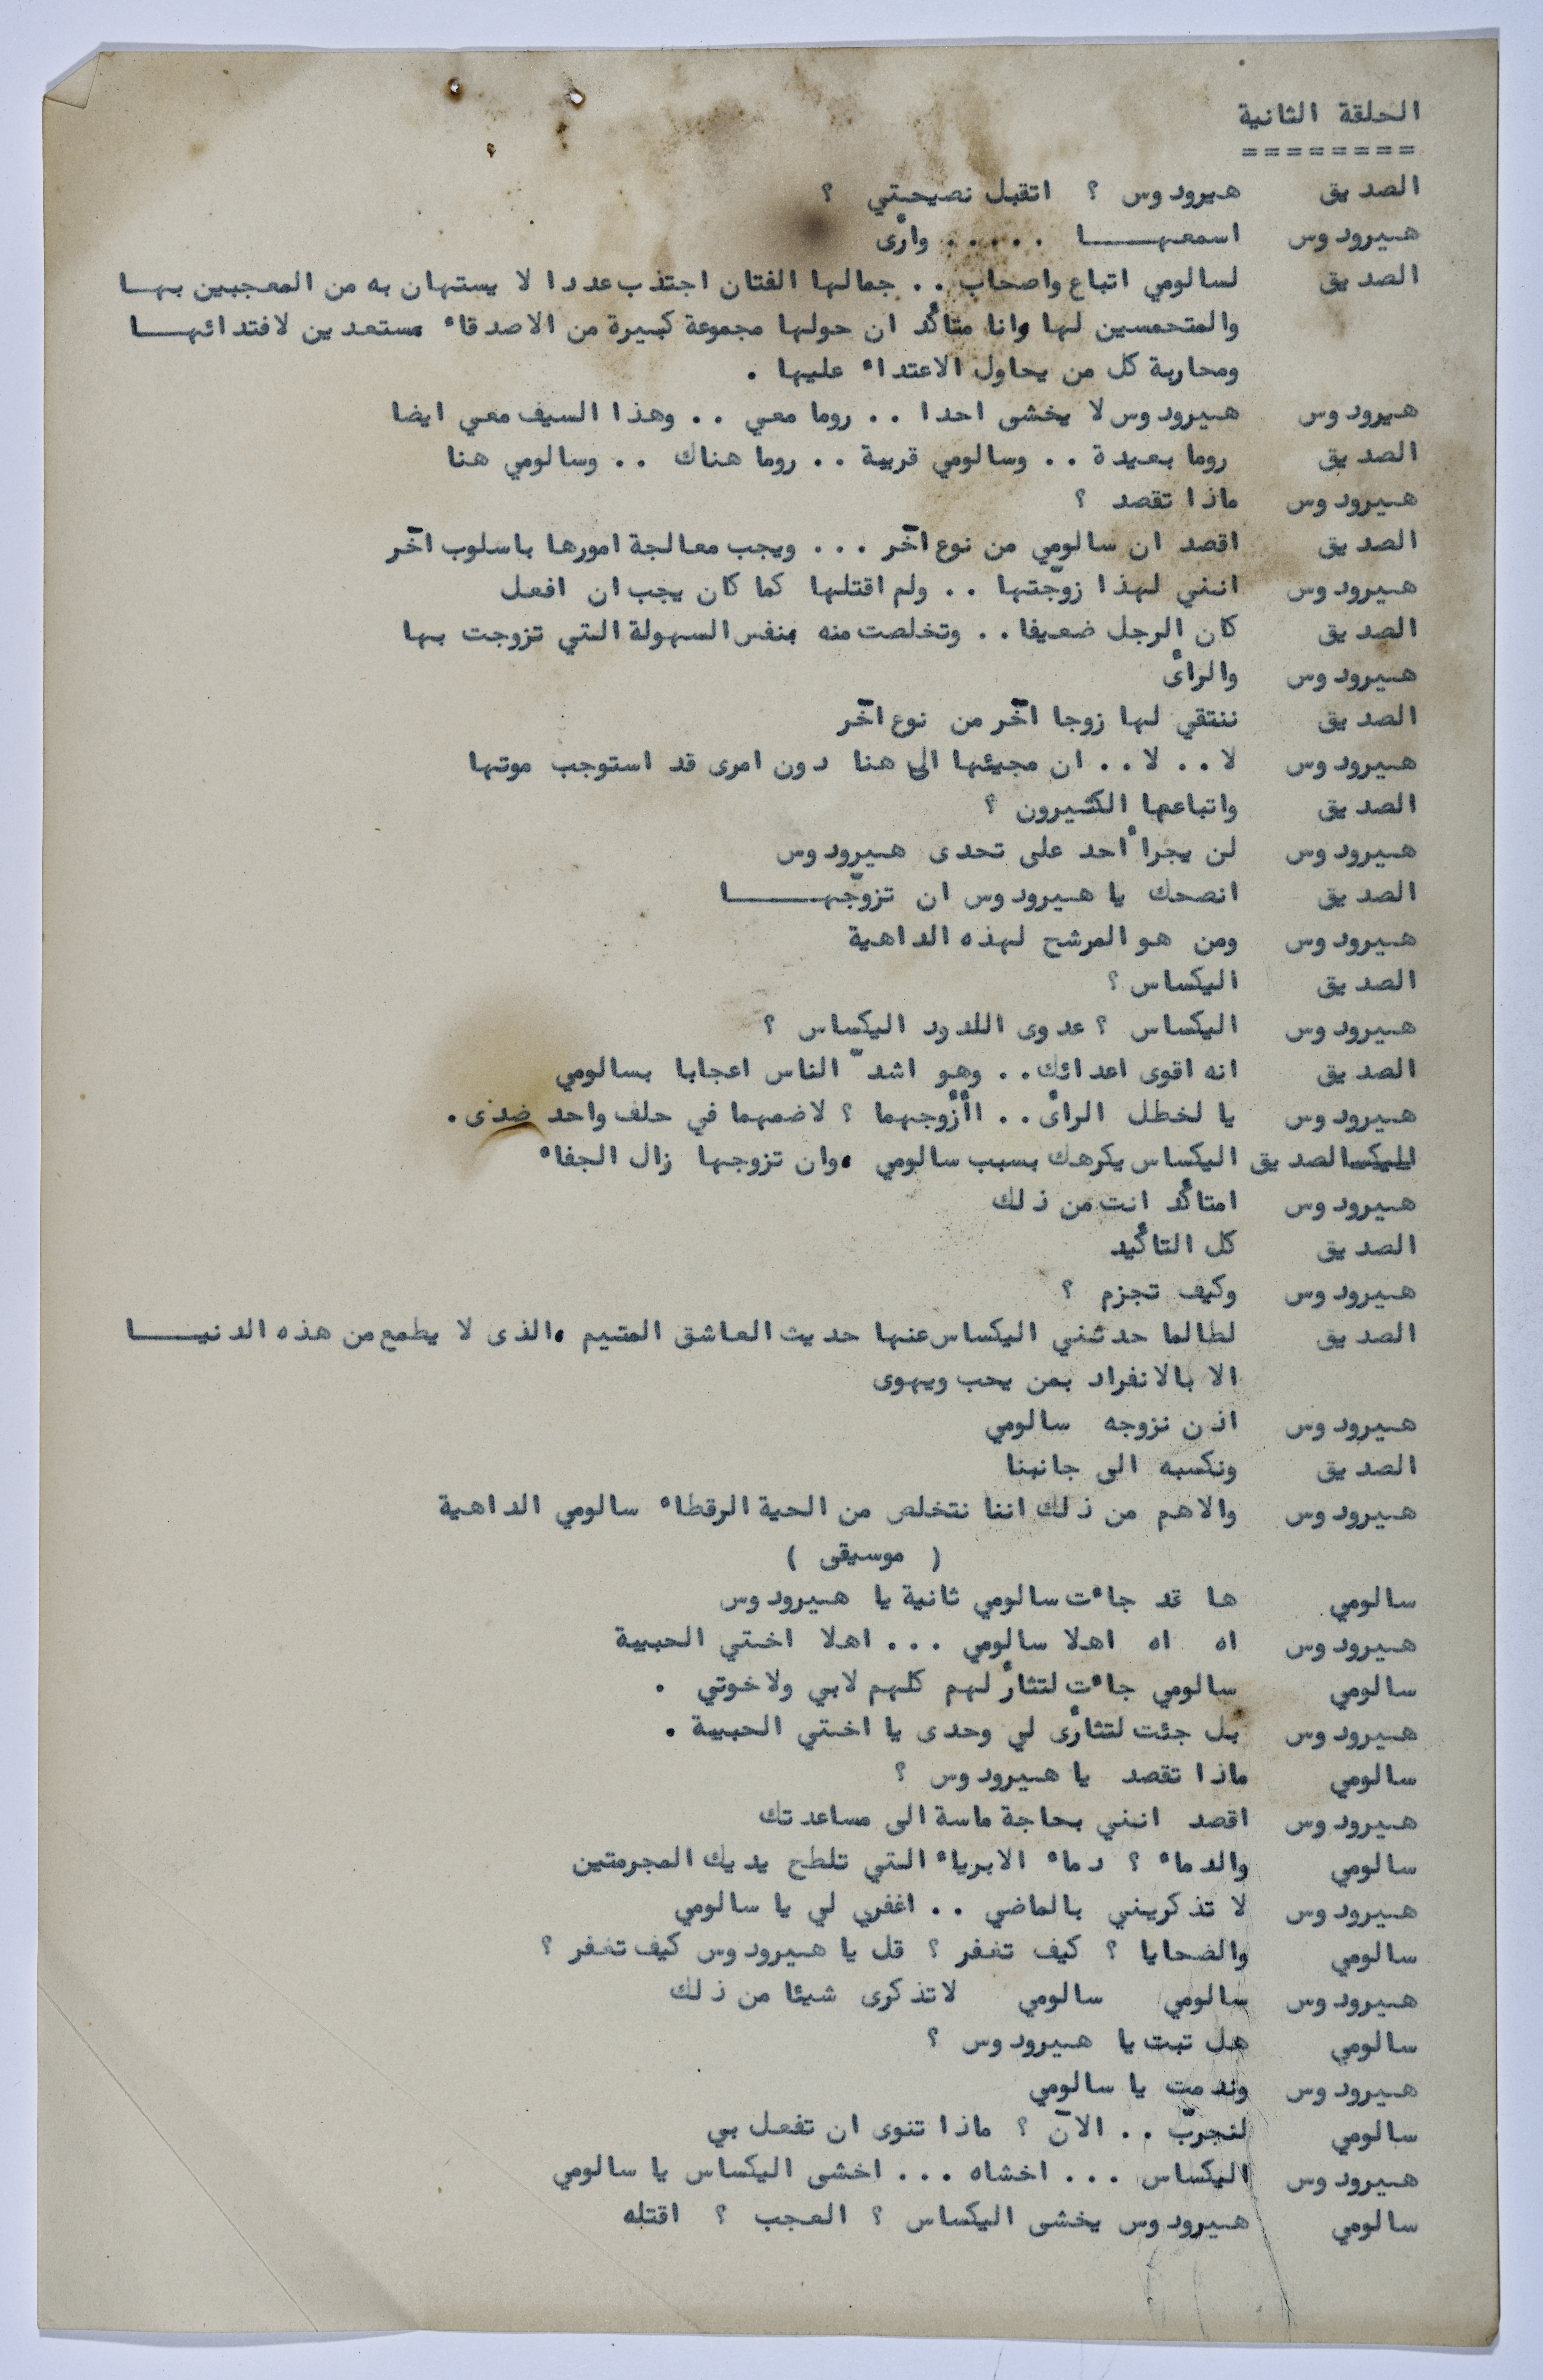 الحلقة الثانية
========
الصديق هيرودوس ؟ اتقبل نصيحتي ؟
هيرودوس اسمعهـــا ..... وارٔى
الصديق لسالومي اتباع واصحاب .. جمالها الفتان اجتذب عددا لا يستهان به من المعجبين بهـا
والمتحمسين لها وانا متاكٔد ان حولها مجموعة كبيرة من الاصدقاء مستعدين لافتدائهـا
ومحاربة كل من يحاول الاعتداء عليها .
هيرودوس هيرودوس لا يخشى احدا .. روما معي .. وهذا السيف معي ايضا
الصديق روما بعيدة .. وسالومي قريبة .. روما هناك .. وسالومي هنا
هيرودوس ماذا تقصد ؟
الصديق اقصد ان سالومي من نوع آخر ... ويجب معالجة امورها باسلوب آخر
هيرودوس انني لهذا زوّجتها .. ولم اقتلها كما كان يجب ان افعل
الصديق كان الرجل ضعيفا .. وتخلصت منه بنفس السهولة التي تزوجت بها
هيرودوس والرأى
الصديق ننتقي لها زوجا آخر من نوع آخر
هيرودوس لا .. لا .. ان مجيئها الى هنا دون امرى قد استوجب موتها
الصديق واتباعها الكثيرون ؟
هيرودوس لن يجرأ احد على تحدى هيرودوس
الصديق انصحك يا هيرودوس ان تزوّجهـــا
هيرودوس ومن هو المرشح لهذه الداهية
الصديق اليكساس ؟
هيرودوس اليكساس ؟ عدوى اللدود اليكساس ؟
الصديق انه اقوى اعدائك .. وهو اشدّ الناس اعجابا بسالومي
هيرودوس يا لخطل الرأى .. أأزوجهما ؟ لاضمهما في حلف واحد ضدى .
اليكسا الصديق اليكساس يكرهك بسبب سالومي ،وان تزوجها زال الجفاء
هيرودوس امتاكٔد انت من ذلك
الصديق كل التاكٔيد
هيرودوس وكيف تجزم ؟
الصديق لطالما حدثني اليكساس عنها حديث العاشق المتيم ،الذى لا يطمع من هذه الدنيـا
الا بالانفراد بمن يحب ويهوى
هيرودوس اذن نزوجه سالومي
الصديق ونكسبه الى جانبنا
هيرودوس والاهم من ذلك اننا نتخلص من الحية الرقطاء سالومي الداهية
( موسيقى )
سالومي ها قد جاءت سالومي ثانية يا هيرودوس
هيرودوس اه اه اهلا سالومي ... اهلا اختي الحبيبة
سالومي سالومي جاءت لتثأر لهم كلهم لابي ولاخوتي .
هيرودوس بل جئت لتثأرى لي وحدى يا اختي الحبيبة .
سالومي ماذا تقصد يا هيرودوس ؟
هيرودوس اقصد انني بحاجة ماسة الى مساعدتك
سالومي والدماء ؟ دماء الابرياء التي تلطح يديك المجرمتين
هيرودوس لا تذكريني بالماضي .. اغفري لي يا سالومي
سالومي والضحايا ؟ كيف تغفر ؟ قل يا هيرودوس كيف تغفر ؟
هيرودوس سالومي سالومي لاتذكرى شيئا من ذلك
سالومي هل تبت يا هيرودوس ؟
هيرودوس وندمت يا سالومي
سالومي لنجربّ .. الآن ؟ ماذا تنوى ان تفعل بي
هيرودوس اليكساس ... اخشاه ... اخشى اليكساس يا سالومي
سالومي هيرودوس يخشى اليكساس ؟ العجب ؟ اقتله